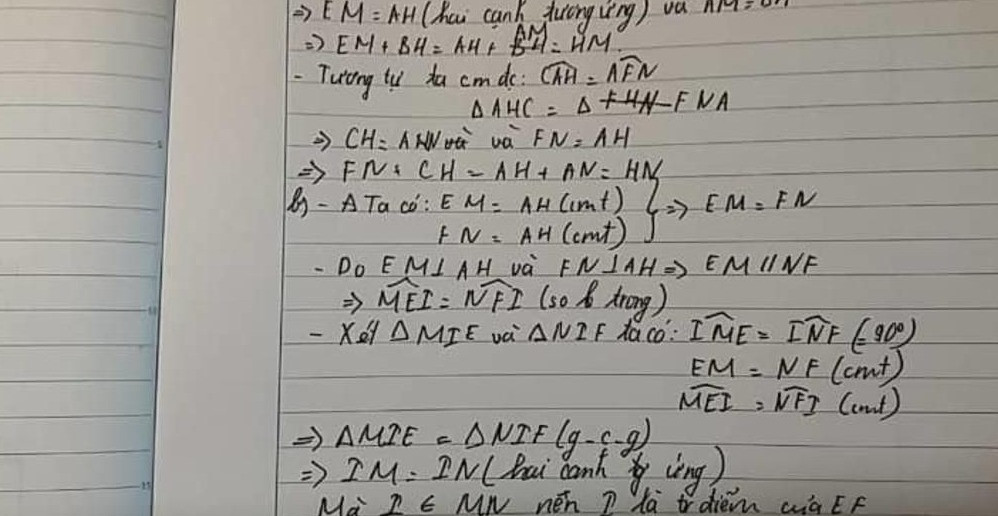 => EM = AH (hai cạnh tương ứng) và AM = BH
=> EM + BH = AH + AM = HM.
- Tương tự ta cm đc: CAH = AFN
ΔAHC = Δ FNA
=> CH = AN và và FN = AH
=> FN + CH = AH + AN = HN
b) - Ta có: EM = AH (cmt) } => EM = FN
FN = AH (cmt)
- Do EM ⊥ AH và FN ⊥ AH => EM // NF
=> MEI = NFI (so le trong)
- Xét ΔMIE và ΔNIF ta có: IME = INF (= 90°)
EM = NF (cmt)
MEI = NFI (cmt)
=> ΔMIE = ΔNIF (g-c-g)
=> IM = IN (hai cạnh tg ứng)
Mà I ∈ MN nên I là tr điểm của EF